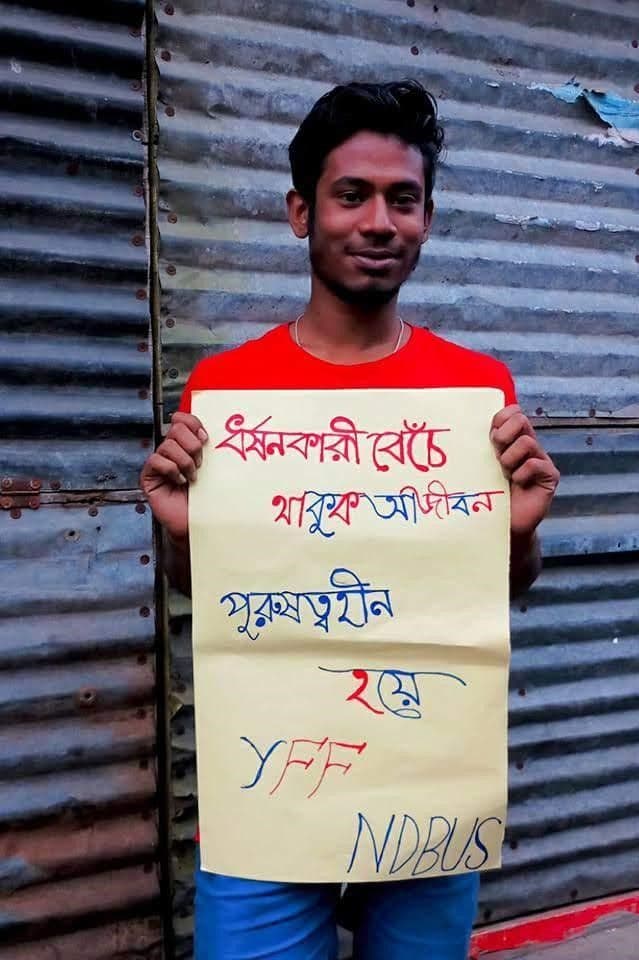 ধর্ষনকারী বেঁচে
থাকুক আজীবন
পুরুষত্বহীন
হয়ে
YFF
NDBUS